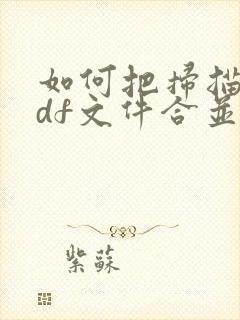 如何把掃描
df文件合並
紫蘇